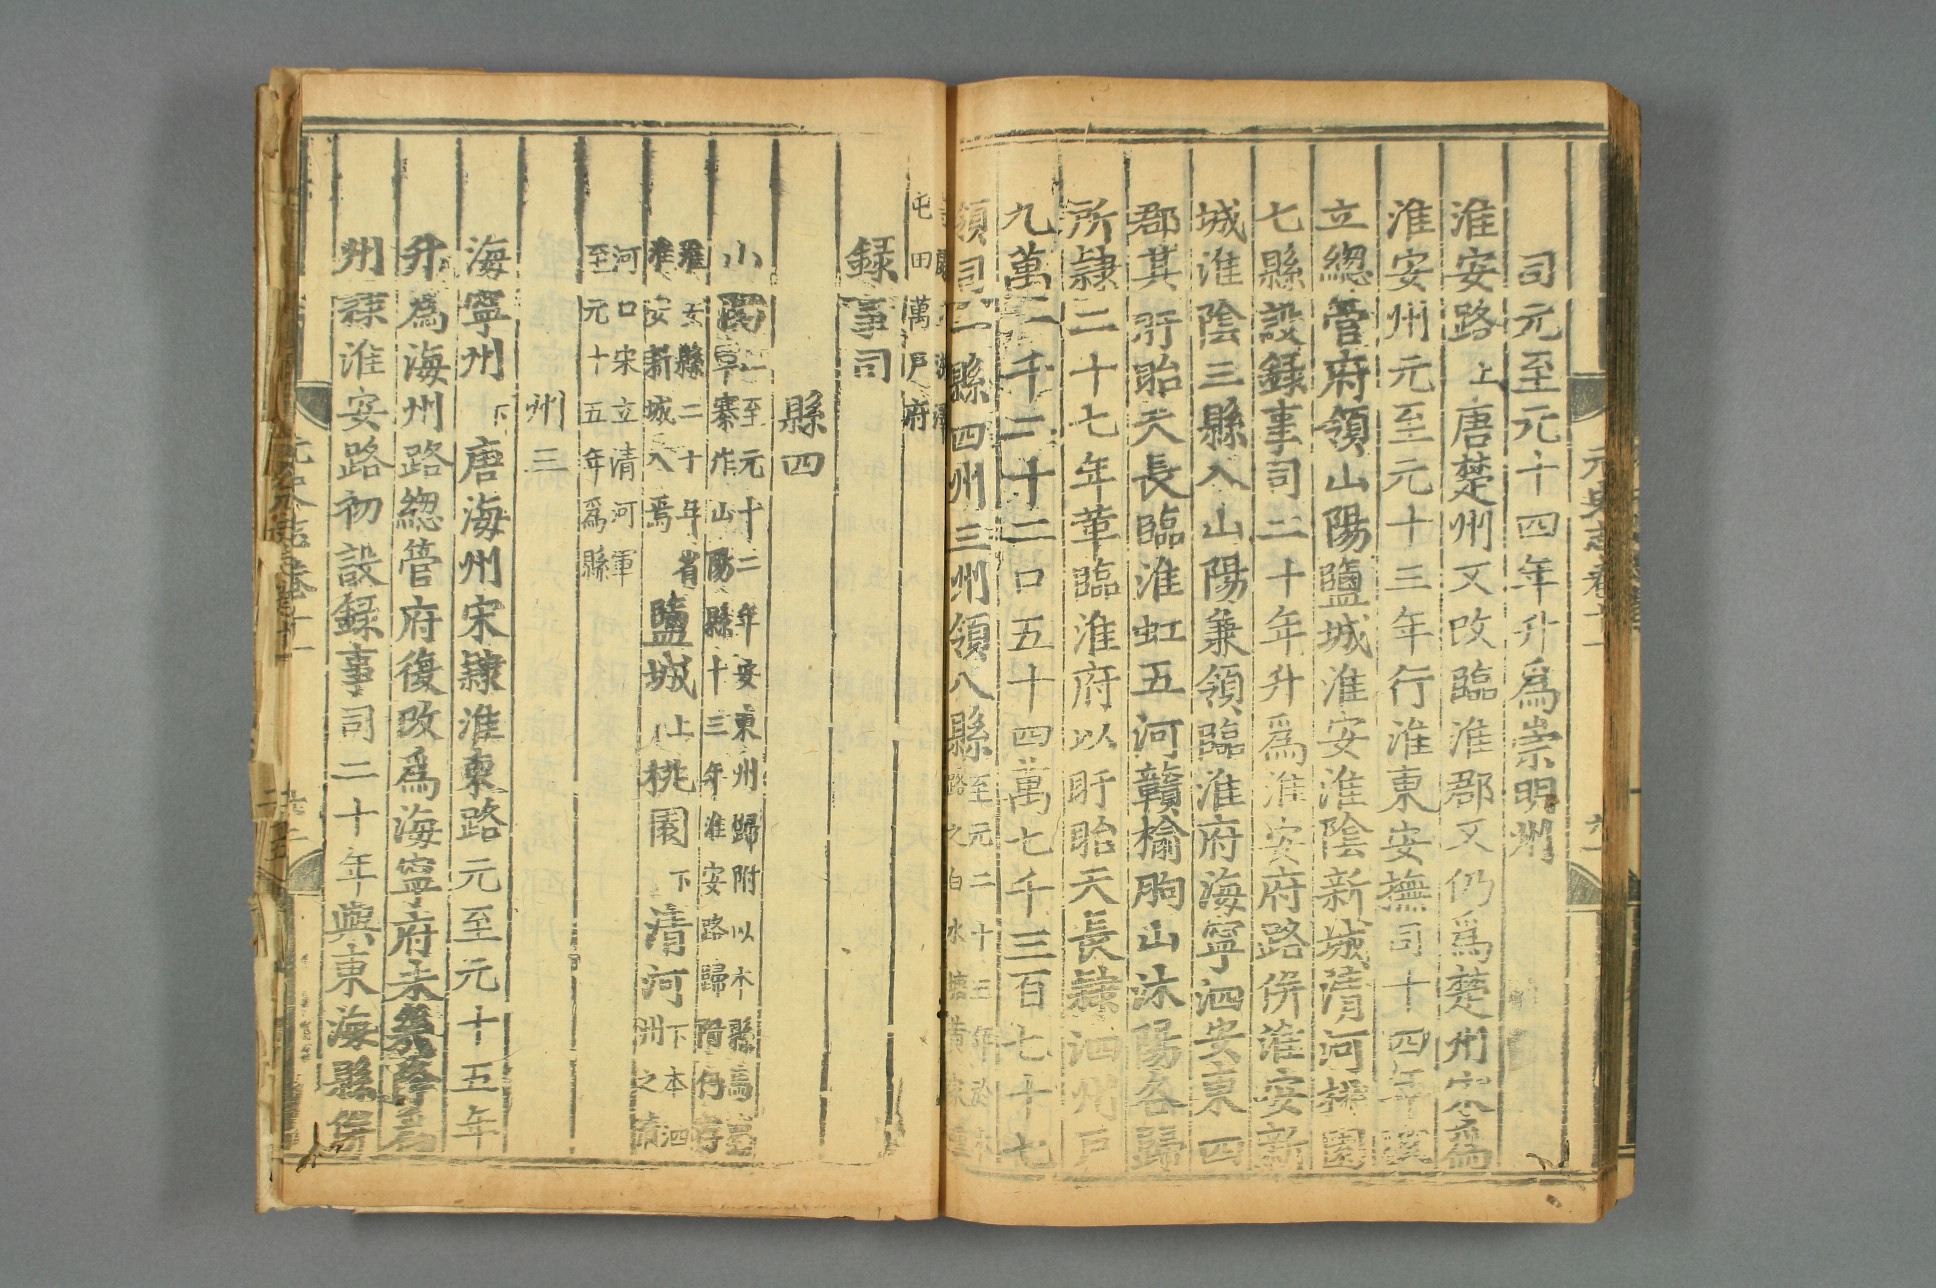 元史志卷十一
司元至元十四年升爲崇明州
淮安路上唐楚州又改臨淮郡又仍爲楚州宋爲
淮安州元至元十三年行淮東安撫司十四年改
立總管府領山陽鹽城淮安淮陰新城清河桃園
七縣設録事司二十年升爲淮安府路併淮安新
城淮陰三縣入山陽兼領臨淮府海寧泗安東四
郡其盱眙天長臨淮虹五河贛榆朐山沐陽各歸
所隷二十七年革臨淮府以盱眙天長隷泗州戸
九萬一千二十二口五十四萬七千三百七十七
領司一縣四州三州領八縣至元二十三年於本
路之白水塘黄家疃
屯田萬戸府
録事司
縣四
山陽上至元十二年安東州歸附以本縣
寨作山陽縣十三年淮安路歸附仍存
淮安縣二十年省
淮安新城入焉
鹽城上桃園下清河下本泗
州之清
河口宋立清河軍
至元十五年爲縣
州三
海寧州下唐海州宋隷淮東路元至元十五年
升爲海州路總管府復改爲海寧府未幾降爲
州隷淮安路初設録事司二十年與東海縣併
元史志卷十一